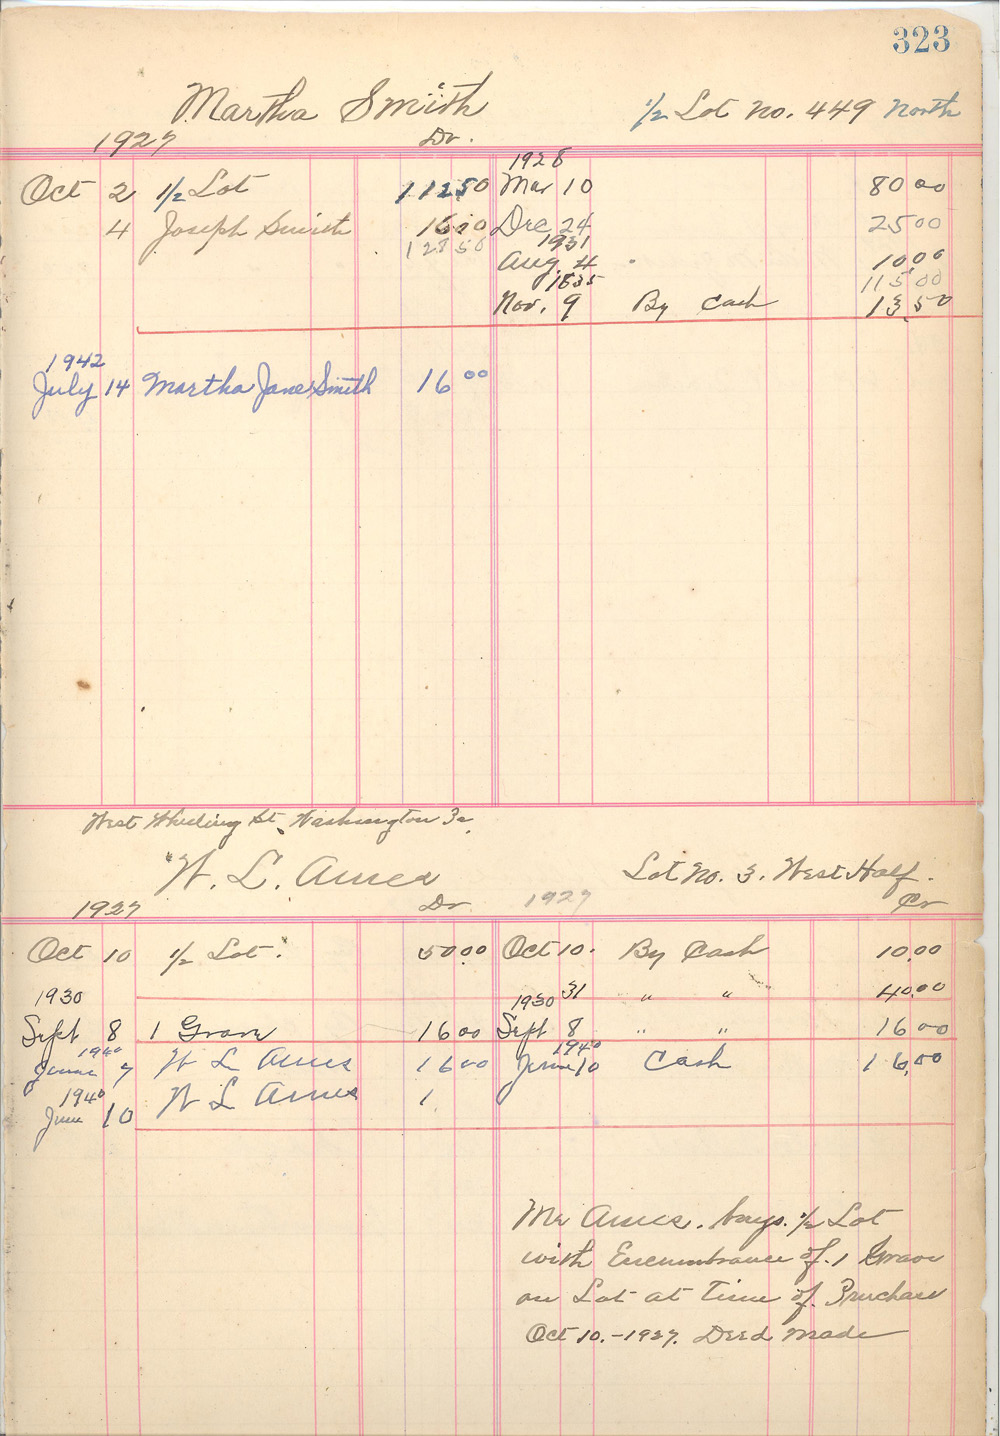 323
Martha Smith 1/2 Lot No. 449 North
1927 Dr.
1928
Oct 2 1/2 Lot 112 50 Mar 10 80 00
4 Joseph Smith 16 00 Dec 24 25 00
128 50 1931
Aug 4 10 00
1935 115 00
Nov. 9 By Cash 13.50
1942
July 14 Martha Jane Smith 16 00
West Wheeling St. Washington
W. L. Ames Lot No. 3. West Half.
1927 Dr 1927 Cr
Oct 10 1/2 Lot. 50 00 Oct 10. By Cash 10.00
1930 1930 31 " " 40.00
Sept 8 1 Grave 16 00 Sept 8 " " 16 00
1940 1940
June 7 W L Ames 16 00 June 10 Cash 16.00
1940
June 10 W L Ames 1
Mr Ames. buys. 1/2 Lot
with Encumbrance of. 1 Grave
on Lot at Time of. Purchase
Oct 10.-1927. Deed Made